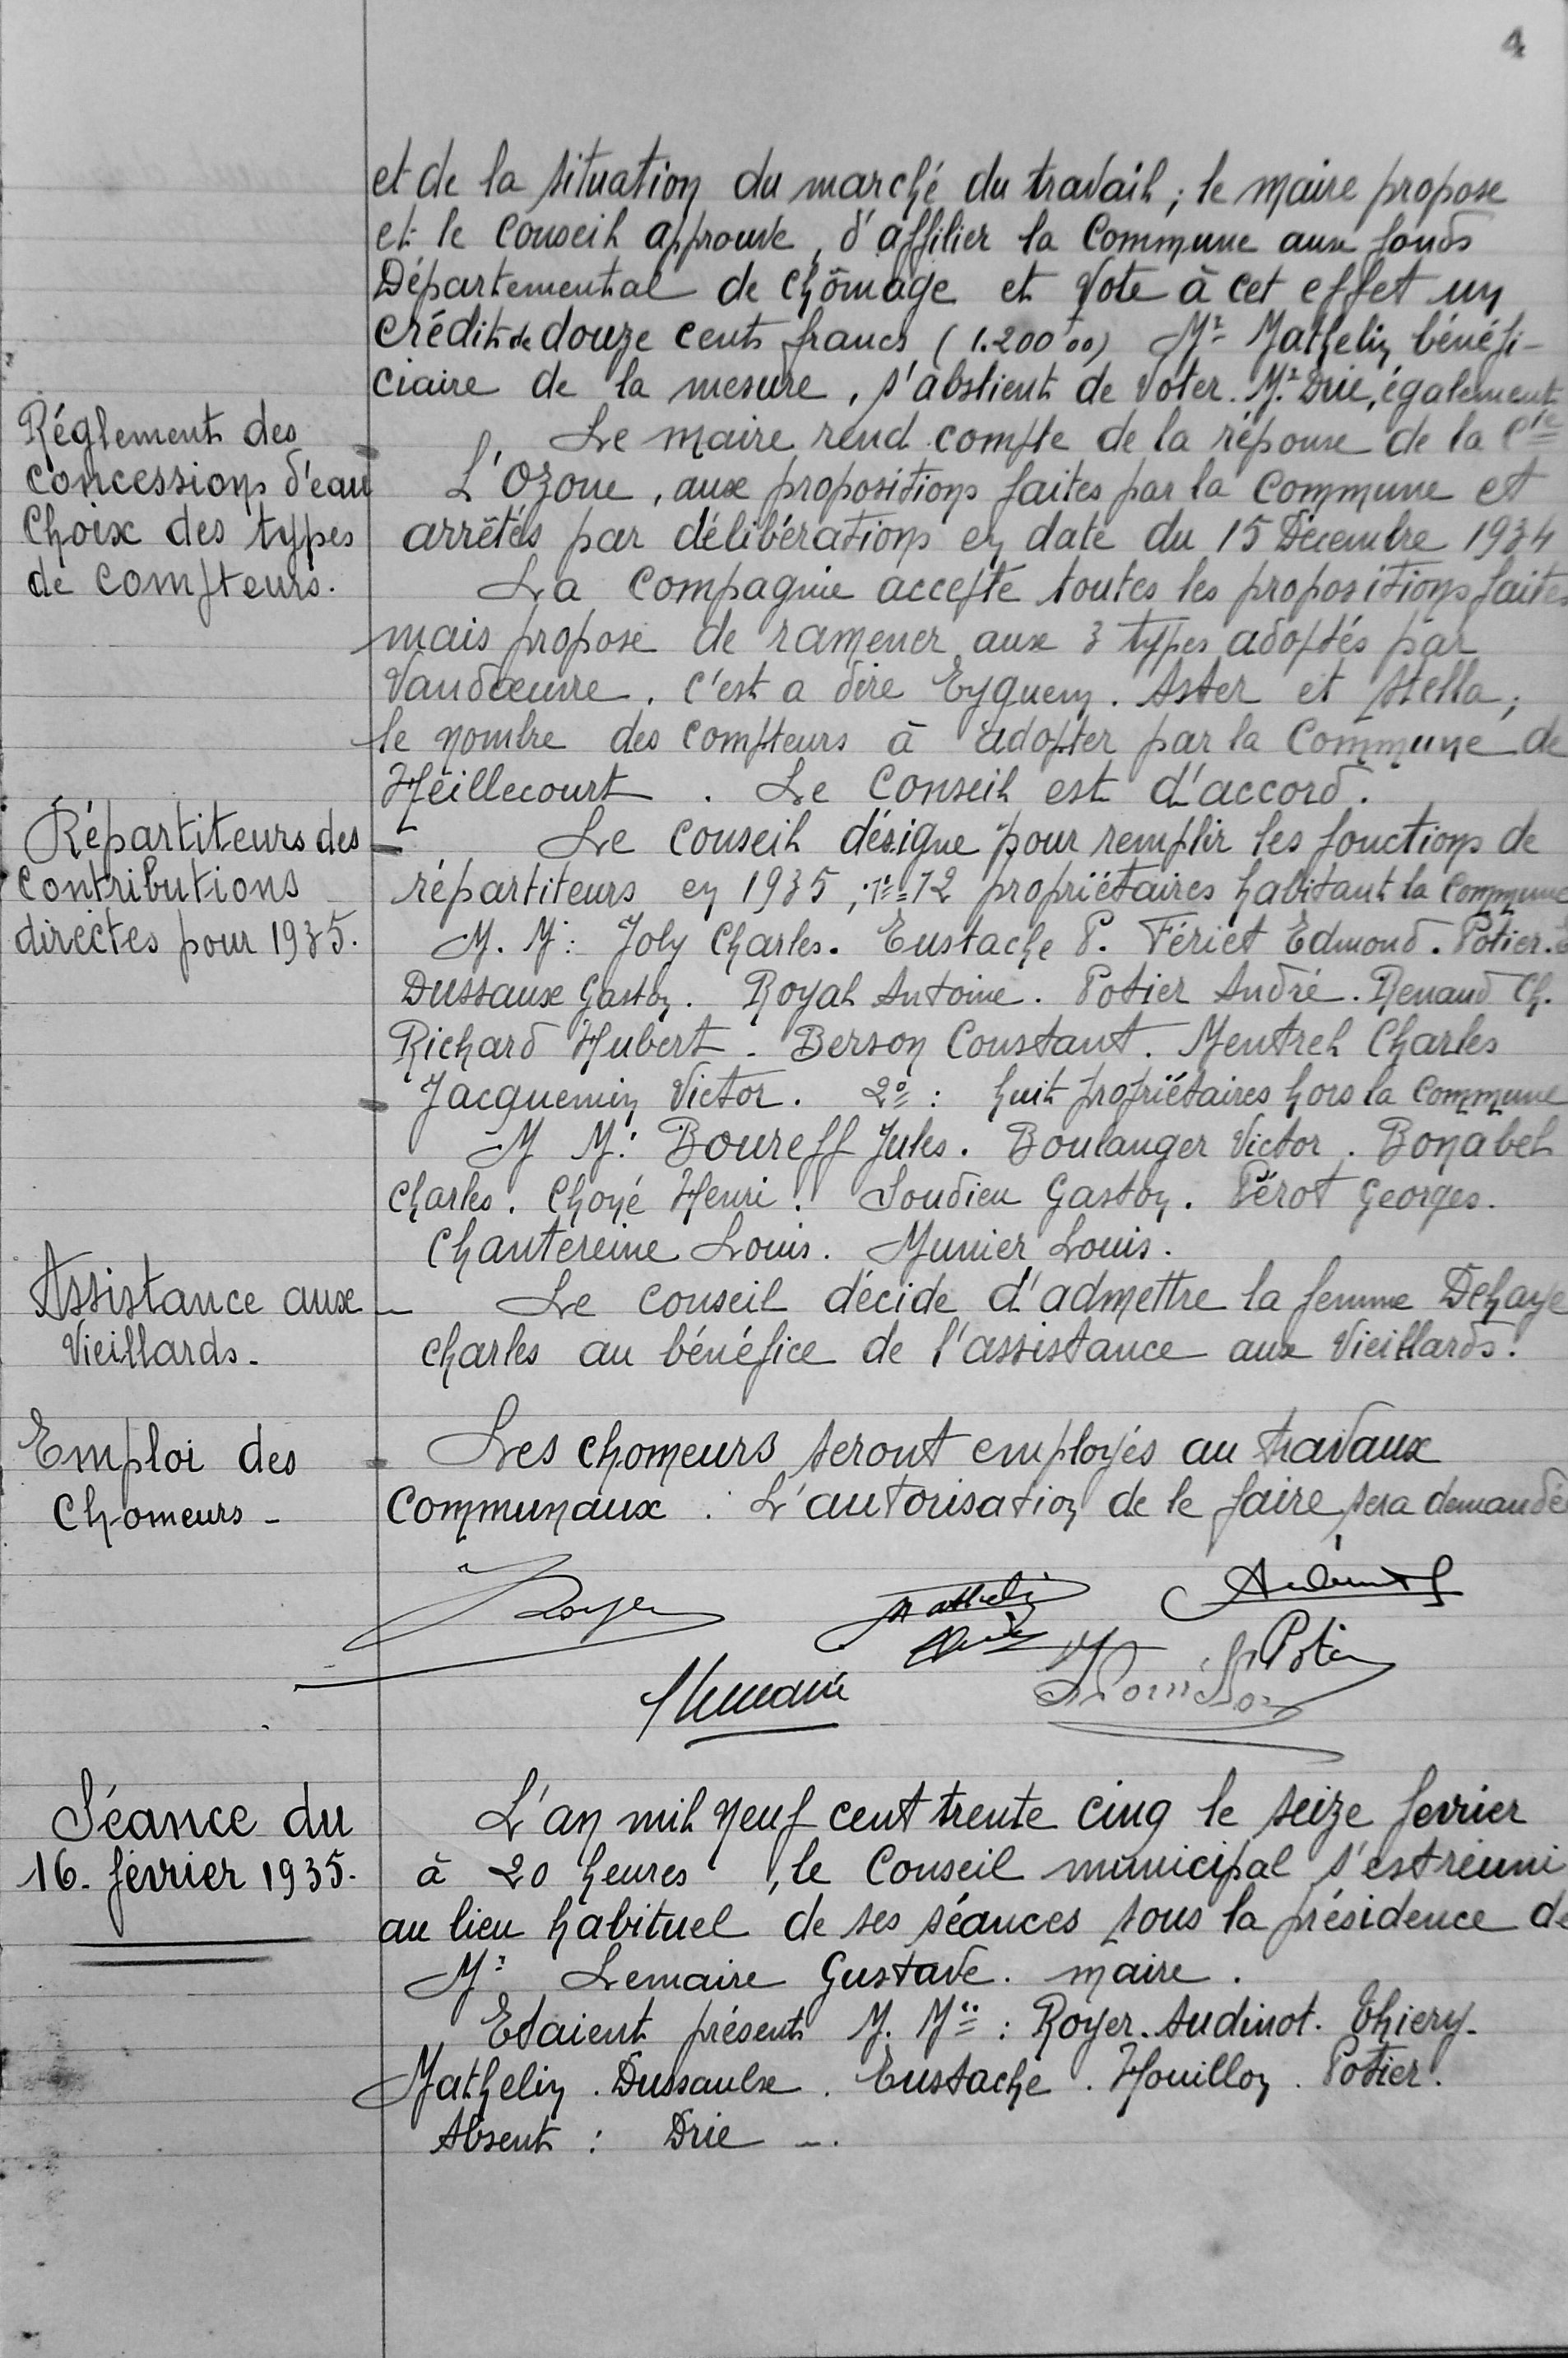 4
et de la situation du marché du travail ; le maire propose
et le conseil approuve, d'affilier la Commune aux fonds
Départemental de chômage et vote à cet effet un
crédit de douze cents francs (1.200 00) Mr Mathelin bénéfi-
ciaire de la mesure, s'abstient de voter. Mr Drie, également
Réglement des
concessions d'eau
Choix des types
de compteurs.
Le maire rend compte de la réponse de la Cie
L'Ozone, aux propositions faites par la commune et
arrêtés par délibérations en date du 15 Décembre 1934
La compagnie accepte toutes les propositions faites
mais propose de ramener aux 3 types adoptés par
Vandœuvre. c'est a dire Eyquem. Aster et Stella,
le nombre des compteurs à adopter par la Commune de
Heillecourt. Le Conseil est d'accord.
Répartiteurs des
contributions
directes pour 1935.
- Le conseil désigne pour remplir les fonctions de
répartiteurs en 1935, 1e = 12 propriétaires habitant la commune
M. M : Joly Charles. Eustache P. Fériet Edmond. Potier.
Dussaux Gaston. Royal Antoine. Potier André. Renaud Ch.
Richard Hubert - Berson Constant. Mentrel Charles
Jacquemin Victor. 2° : huit propriétaires hors la commune
M M : Boureff Jules. Boulanger Victor. Bonabel
charles. Choné Henri. Soudieu Gaston. Pérot Georges.
Chantereine Louis. Munier Louis.
Assistance aux
Vieillards.
- Le conseil décide d'admettre la femme Dehaye
charles au bénéfice de l'assistance aux Vieillards.
Emploi des
Chomeurs -
- Les chomeurs seront employés au travaux
communaux. L'autorisation de le faire sera demandé
Royer
Mathelin
Potier
Lemaire
Séance du
16. février 1935.
L'an mil neuf cent trente cinq le seize fevrier
à 20 heures, le Conseil municipal s'est réuni
au lieu habituel de ses séances sous la présidence de
Mr Lemaire Gustave. maire.
Etaient présents M. Mrs : Royer. Audinot. Thiery.
Mathelin. Dussaulx. Eustache. Houillon. Potier.
Absent : Drie -.